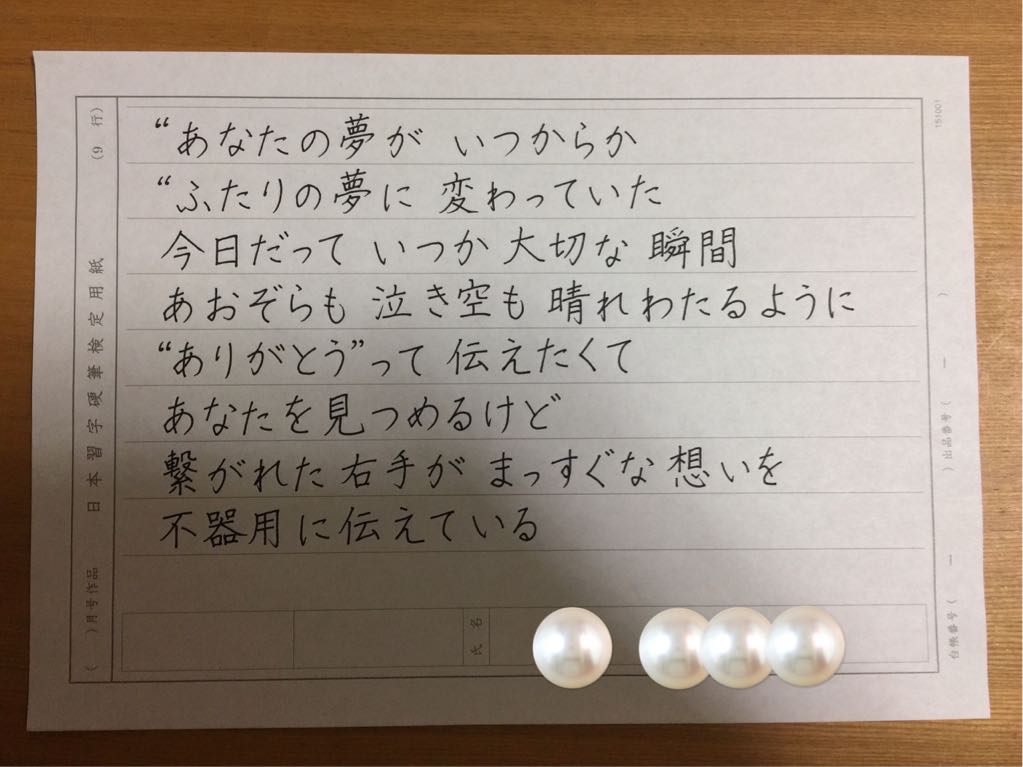 “あなたの夢が いつからか
“ふたりの夢に 変わっていた
今日だって いつか 大切な 瞬間
あおぞらも 泣き空も 晴れわたるように
“ありがとう”って 伝えたくて
あなたを見つめるけど
繋がれた右手が まっすぐな想いを
不器用に伝えている
氏名
( )月号作品 日本習字硬筆検定用紙 (9行)
151001
台帳番号( ー )出品番号( ー )